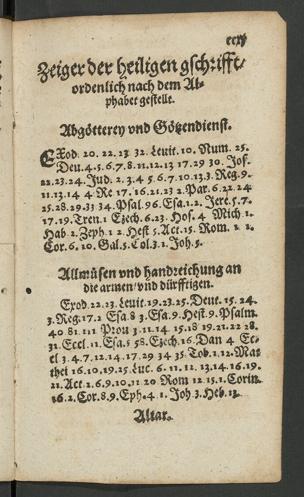 Zeiger der heiligen gschrifft/
ordenlich nach dem Al-
phabet gestelt.
Abgötterey vnd Götzendienst.
Exod. 20. 22. 23 32. Leuit. 10. Num. 25.
Deu. 4. 5. 6. 7. 8. 11. 12. 13 17. 29 30. Jos.
22. 23. 24. Jud. 2. 3. 4 5 6. 7. 10. 13. 3. Reg. 9.
11. 13. 14 4 Re 17. 16. 21. 23 2. Par. 6. 22 24
25. 28. 29. 33 34. Psal. 96. Esa. 1. 2. Jere. 5. 7.
17. 19. Tren. 1 Ezech. 6. 23. Hos. 4 Mich 1.
Hab 2. Zeph. 1 2. Hest 5. Act. 15. Rom. 1. 2.
Cor. 6. 10. Gal. 5. Col. 3. 1. Joh. 5.
Allmüsen vnd handreichung an
die armen/vnd dürfftigen.
Exod. 22. 23. Leuit. 19. 23. 25. Deut. 15. 24.
3. Reg. 17. 2 Esa. 8 3. Esa. 9. Hest. 9. Psalm.
40 81. 111 Prou 3. 11. 14 15. 18 19. 21. 22 28.
31. Eccl. 11. Esa. 5 58. Ezech. 16. Dan 4 Ec-
cl 3. 4. 7. 12. 14. 17. 29 34 35 Tob. 1. 12. Mat
thei 16. 10. 19. 25. Luc. 6. 11. 12. 13. 14. 16. 19.
21. Act. 2. 6. 9. 10. 11 20 Rom 12. 15. 1. Corin.
16. 2. Cor. 8. 9. Eph. 4 1. Joh 3. Heb. 13.
Altar.